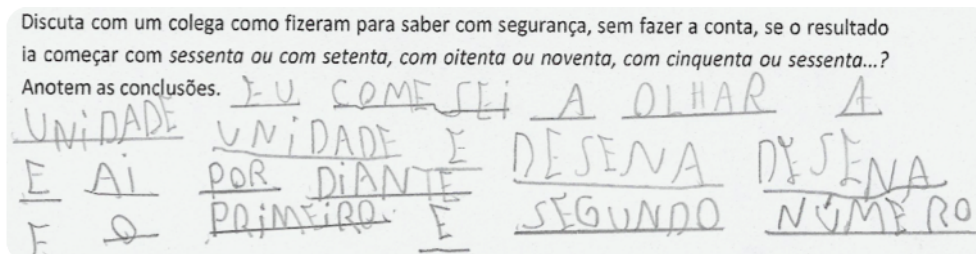 Discuta com um colega como fizeram para saber com segurança, sem fazer a conta, se o resultado
ia começar com sessenta ou com setenta, com oitenta ou noventa, com cinquenta ou sessenta...?
Anotem as conclusões. EU COMESEI A OLHAR A
UNIDADE UNIDADE E DESENA DESENA
E AI POR DIANTE
E O PRIMEIRO E SEGUNDO NÚMERO